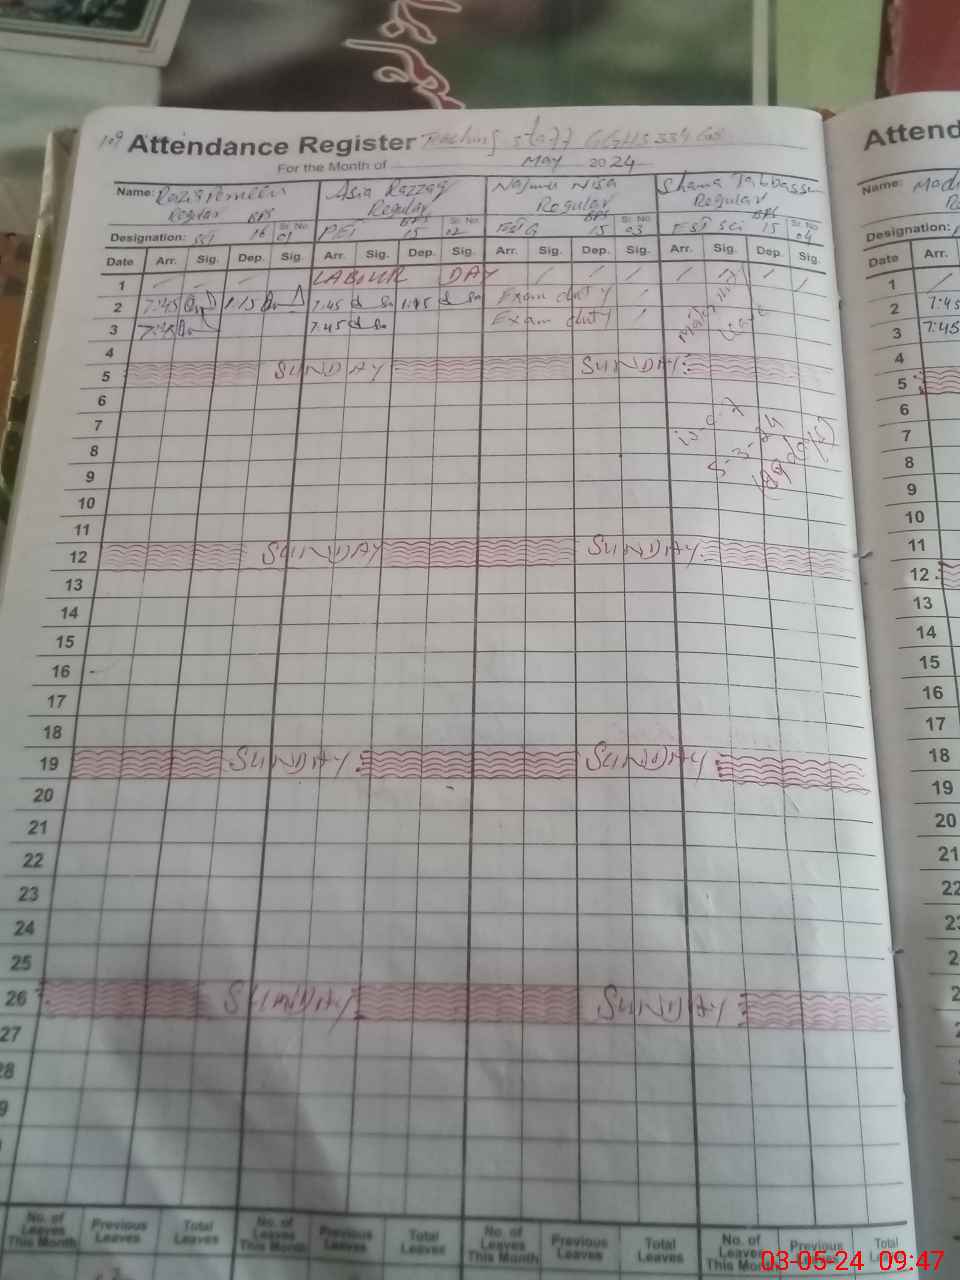 109 Attendance Register Teaching staff GGHS 334 GB
For the Month of May 2024
Name: Razia Asia Razzaq Najmu Nisa Shama Tabbassum
Regular BPS Regular Regular Regular
Designation: SST 16 Sr. No. 01 PET BPS 15 Sr. No. 02 BPS 15 Sr. No. 03 EST Sci BPS 15 Sr. No. 04
Date Arr. Sig. Dep. Sig. Arr. Sig. Dep. Sig. Arr. Sig. Dep. Sig. Arr. Sig. Dep. Sig.
1 LABOUR DAY
2 7:45 1:15 7:45 1:15 Exam duty
3 7:45 7:45 Exam duty
Maternity
Leave
4
5 SUNDAY SUNDAY
6
7
8
9
10
11
12 SUNDAY SUNDAY
13
14
15
16
17
18
19 SUNDAY SUNDAY
20
21
22
23
24
25
26 SUNDAY SUNDAY
27
28
9
No. of Leaves This Month Previous Leaves Total Leaves No. of Leaves This Month Previous Leaves Total Leaves No. of Leaves This Month Previous Leaves Total Leaves No. of Leaves This Month Previous Leaves Total Leaves
Attend
Name:
Designation:
Date Arr.
1
2 7:45
3 7:45
4
5
6
7
8
9
10
11
12
13
14
15
16
17
18
19
20
21
22
03-05-24 09:47